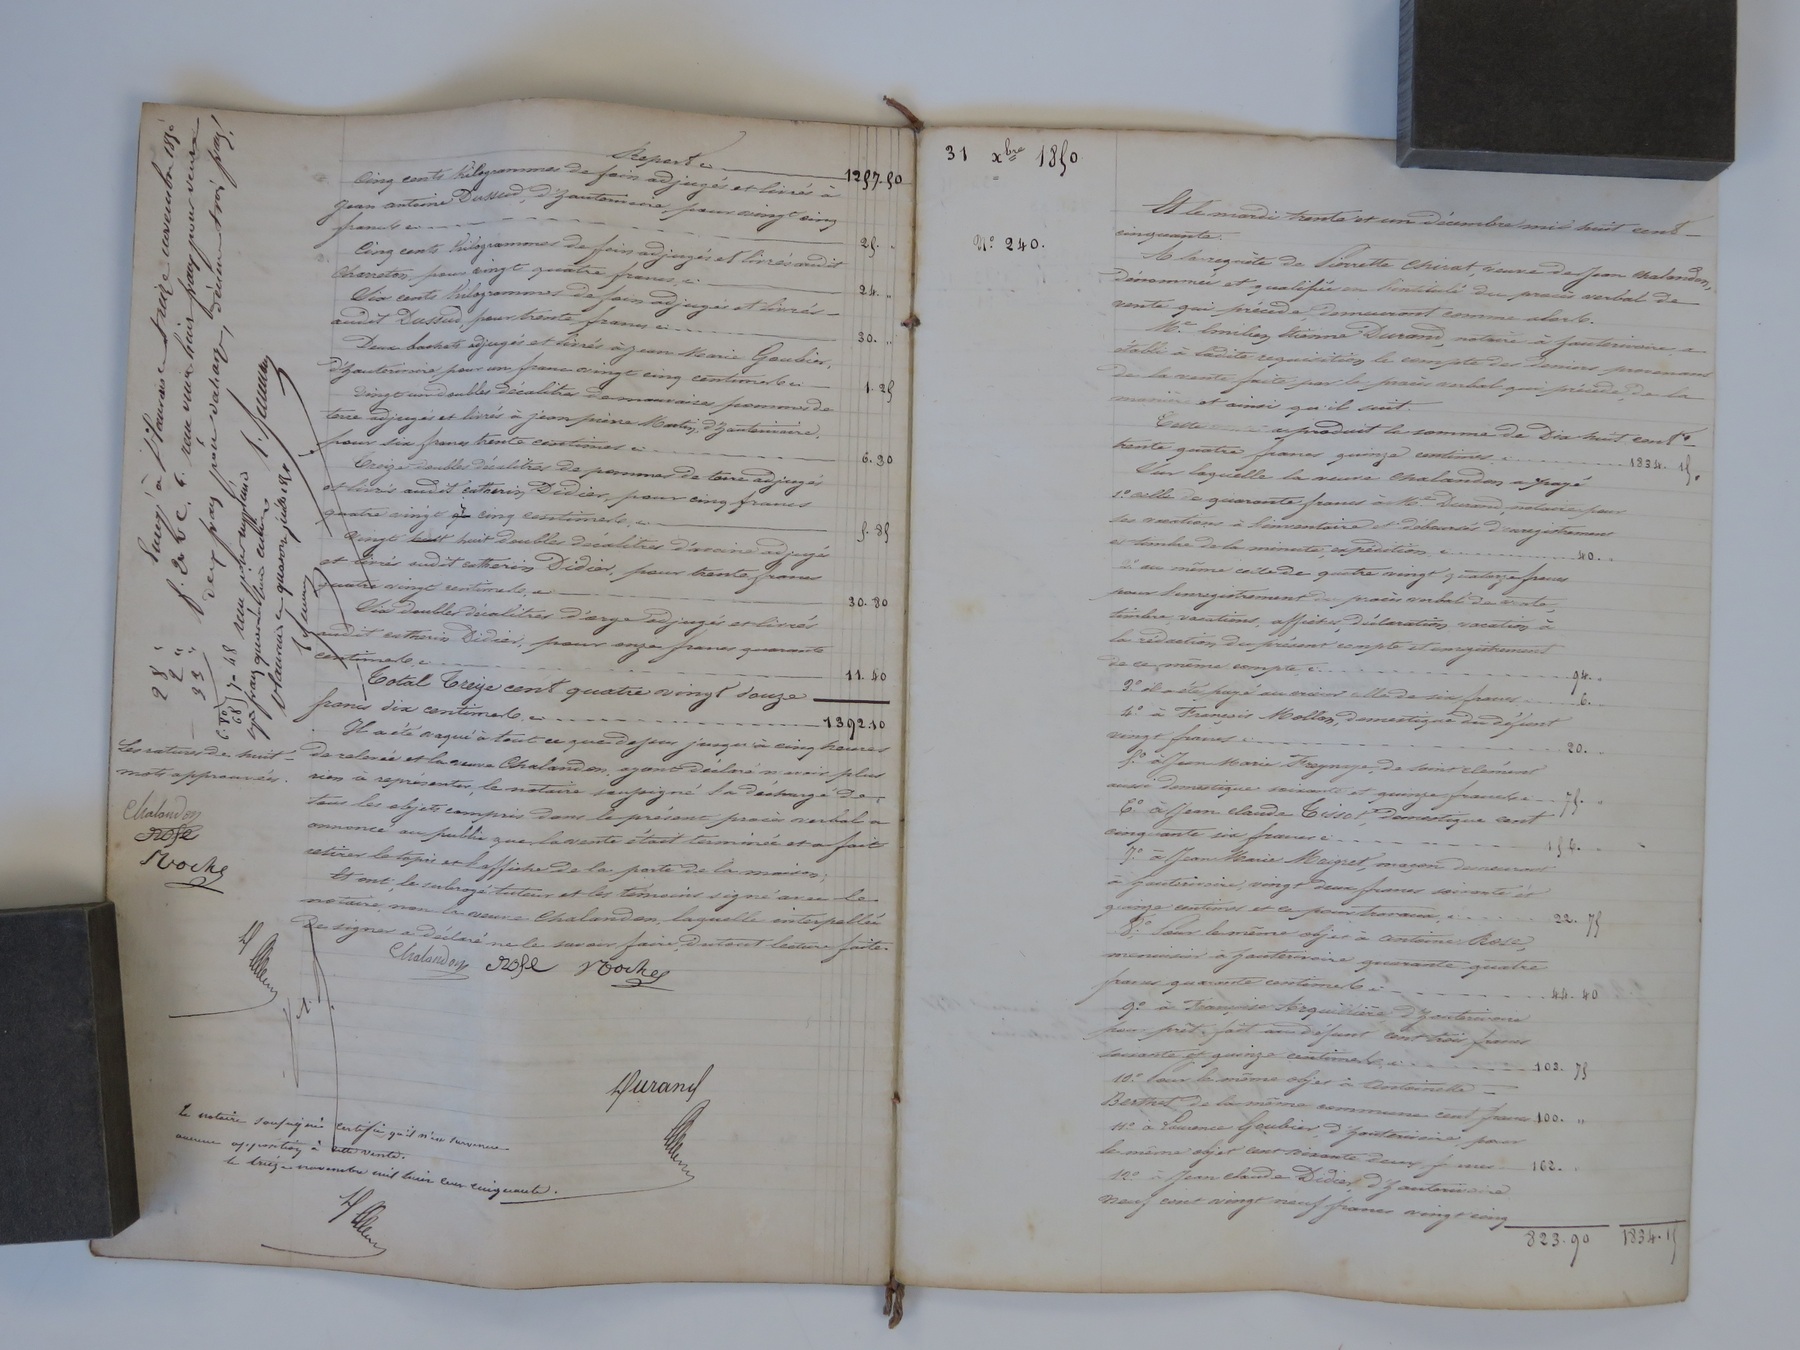 Report 1257.50
Cinq cents kilogrammes de foin adjugés et livrés à
jean antoine Dussud, d'yzauterivoire, pour vingt cinq
francs 25. "
Cinq cents kilogrammes de foin adjugés et livrés audit
Charretton, pour vingt quatre francs, c. 24. "
Six cents kilogrammes de foin adjugés et livrés
audit Dussud, pour trente francs 30. "
Deux baches adjugés et livrés à jean Marie Goubier,
d'yzauterivoire, pour un franc vingt cinq centimes 1.25
Vingt un doubles décalitres de mauvaises pommes de
terre adjugés et livrés à jean pierre Martin, d'yzauterivoire,
pour six francs trente centimes 6.30
Treize doubles décalitres de pommes de terre adjugés
et livrés audit catherin Didier, pour cinq francs
quatre vingt cinq centimes, c. 5.85
Vingt huit doubles décalitres d'avoine adjugés
et livrés audit catherin Didier, pour trente francs
quatre vingt centimes, c. 30.80
Six doubles décalitres d'orge adjugés et livrés
audit catherin Didier, pour onze francs quarante
centimes, c. 11.40
Total Treize cent quatre vingt douze
francs dix centimes, c. 1392.10
Il a été vaqué à tout ce que dessus jusqu'à cinq heures
de relevée et la veuve Chalandon, ayant déclaré n'avoir plus
rien à représenter, le notaire soussigné l'a déchargé de
tous les objets compris dans le présent procès verbal a
annoncé au public que la vente était terminée et a fait
retirer le tapis et l'affiche de la porte de la maison;
Et ont, le subrogé tuteur et les témoins signé avec le
notaire, non la veuve Chalandon, laquelle interpellée
De signer a déclaré ne le savoir faire, dutout lecture faite.
Chalandon Rose Roche
Durand
Les ratures de huit
mots approuvées.
Chalandon
Rose
Roche
Le notaire soussigné certifie qu'il n'est survenue
aucune opposition à cette vente.
le treize novembre mil huit cent cinquante.
31 xbre 1850
N° 240.
Et le mardi trente et un décembre mil huit cent
cinquante.
A la requête de Pierrette Chirat, veuve de Jean Chalandon,
dénommée et qualifiée en l'intitulé du procès verbal de
vente qui précède, demeurant comme alors.
Me Emilien Etienne Durand, notaire à yzauterivoire a
établi à ladite requisition le compte des deniers provenans
de la vente faite par le procès verbal qui précède, de la
manière et ainsi qu'il suit.
Cette a produit la somme de Dix huit cent
trente quatre francs quinze centimes, c. 1834. 15.
Sur laquelle la veuve Chalandon a payé
1° celle de quarante francs à Me Durand, notaire pour
ses vacations à l'inventaire et déboursés d'enregistrement
et timbre de la minute, expédition 40. "
2° au même celle de quatre vingt quatorze francs
pour l'enregistrement du procès verbal de vente,
timbre, vacations, affiches, déclaration, vacation à
la rédaction du présent compte et enregistrement
de ce même compte, c. 94. "
3° il a été payé au crieur celle de six francs 6. "
4° à François Mollon, domestique du défunt
vingt francs 20. "
5° à Jean Marie Freynge, de saint clément
aussi domestique soixante et quinze francs 75. "
6° à Jean claude Tissot, domestique cent
cinquante six francs 156. "
7° à Jean Marie Meigret, maçon demeurant
à yzauterivoire, vingt deux francs soixante et
quinze centimes et ce pour travaux, c. 22. 75
8° Pour le même objet à antoine Rose,
menuisier à yzauterivoire quarante quatre
francs quarante centimes 44. 40
9° à Françoise Arquillière d'yzauterivoire
pour prêt fait au défunt cent trois francs
soixante et quinze centimes 103. 75
10° Pour le même objet à Antoinette
Berthet, de la même commune cent francs 100. "
11° à Laurence Goubier, d'yzauterivoire, pour
le même objet cent soixante deux francs 162. "
12° à Jean claude Didier, d'yzauterivoire
neuf cent vingt neuf francs vingt cinq
823.90 1834.15